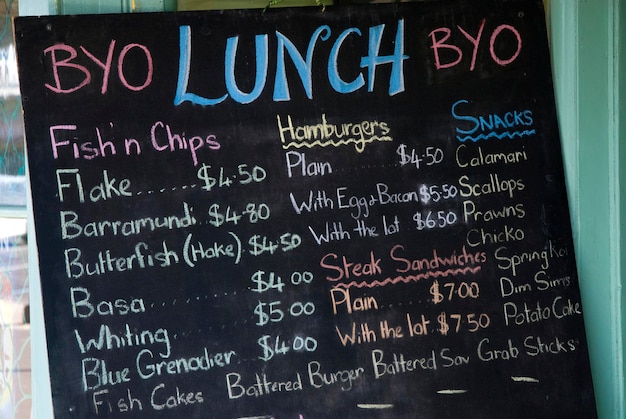 BYO LUNCH BYO
Fish'n Chips
Flake......$4.50
Barramundi.$4.80
Butterfish (Hake) $4.50
Basa............$4.00
Whiting.........$5.00
Blue Grenadier...$4.00
Hamburgers
Plain.......$4.50
With Egg & Bacon $5.50
With the lot $6.50
Steak Sandwiches
Plain......$7.00
With the lot $7.50
Snacks
Calamari
Scallops
Prawns
Chicko
Dim Sims
Potato Cake
Fish Cakes Battered Burger Battered Sav Grab Sticks